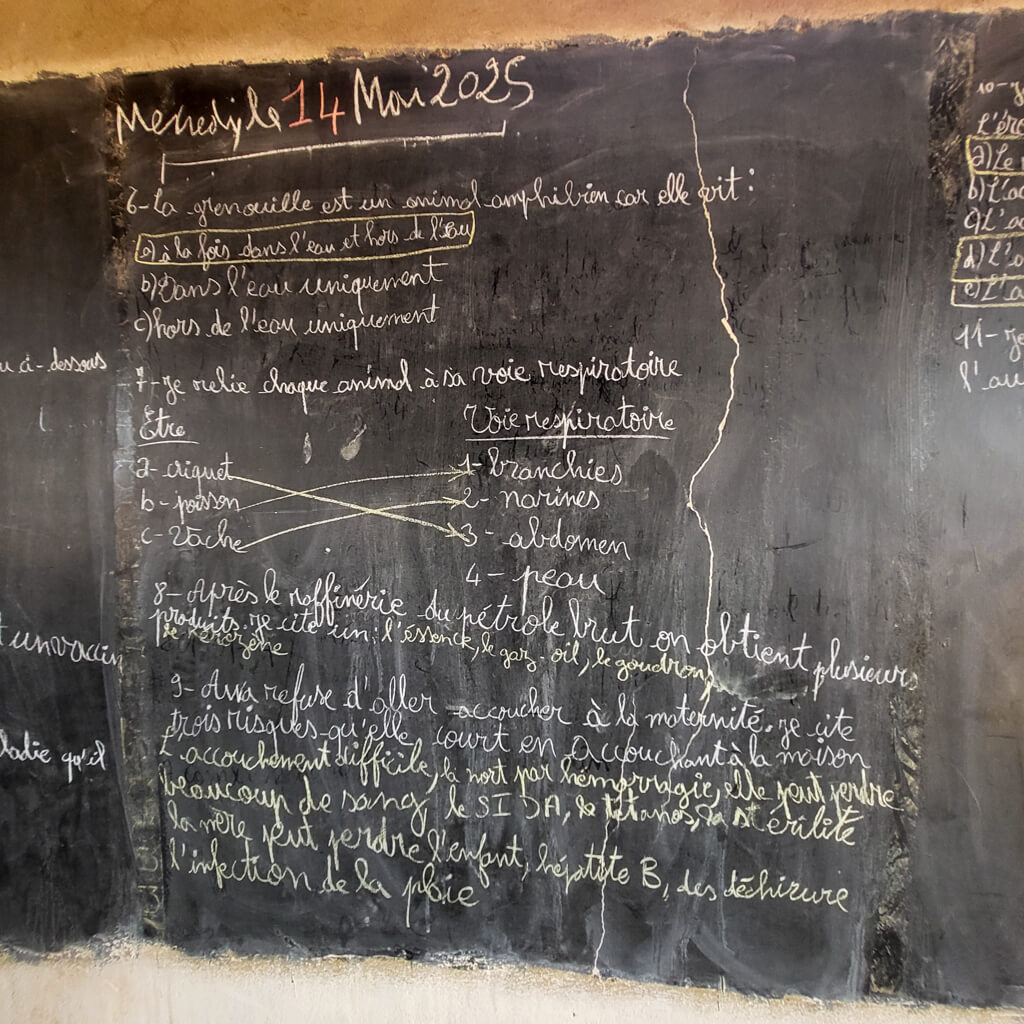 Mercredi, le 14 Mai 2025
6-La grenouille est un animal amphibien car elle vit:
a) à la fois dans l'eau et hors de l'eau
b) Dans l'eau uniquement
c) hors de l'eau uniquement
7- Je relie chaque animal à sa voie respiratoire
Etre
Voie respiratoire
a- criquet
1- branchies
b- poisson
2- narines
c- Vache
3- abdomen
4- peau
8- Après le raffinérie du pétrole brut on obtient plusieurs
produits. Je cite un: l'éssence, le gaz-oil, le goudron,
le kérozène
9- Awa refuse d'aller accoucher à la maternité. Je cite
trois risques qu'elle court en accouchant à la maison
L'accouchement difficile, la mort par hémorragie, elle peut perdre
beaucoup de sang, le SIDA, le tétanos, la stérilité
la mère peut perdre l'enfant, hépatite B, des déchirure
l'infection de la plaie
ci-dessous
un vaccin
qu'il
10-
a) Le
b) L'ac
d) L'a
e) L'a
11- Je
l'au